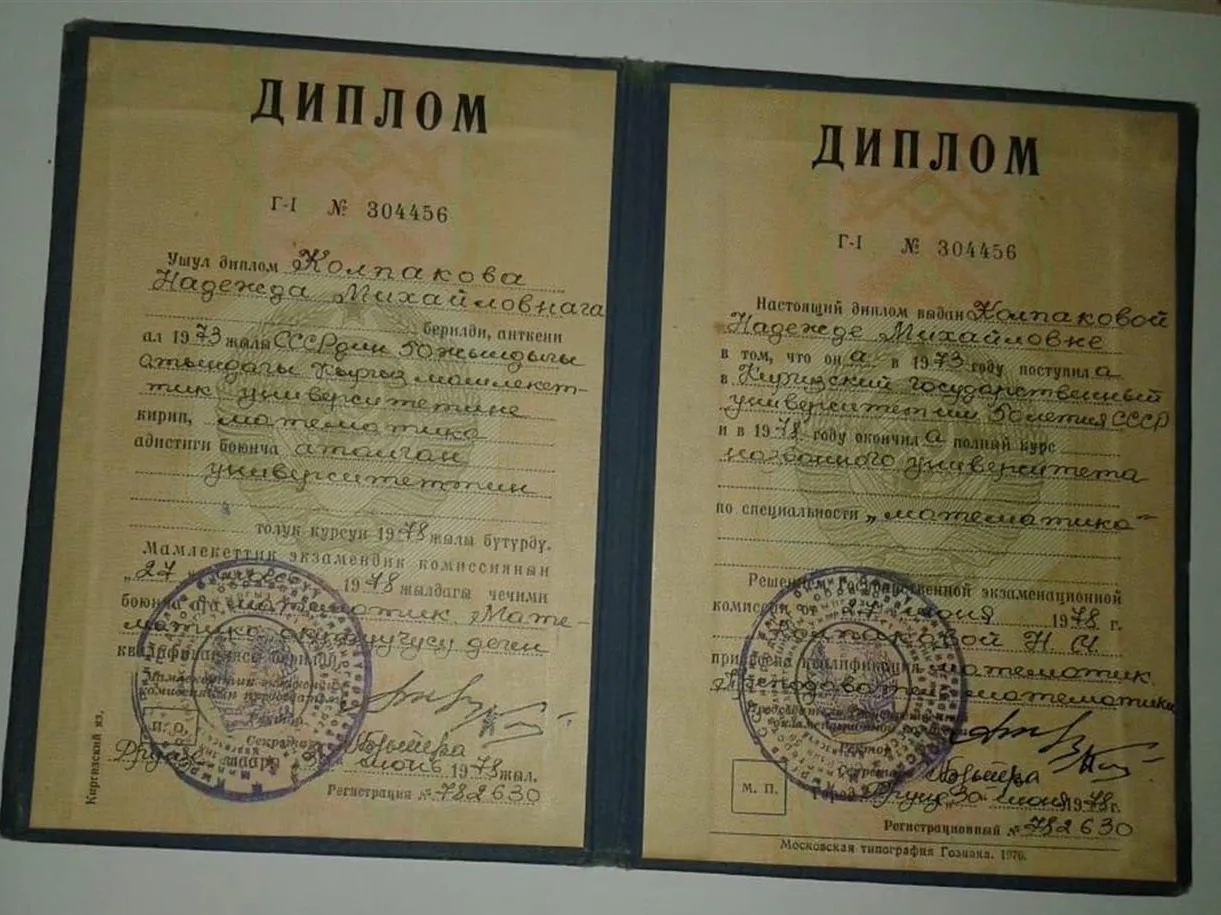 ДИПЛОМ
Г-I № 304456
Ушул диплом Колпакова
Надежда Михайловнага
берилди, анткени
ал 1973 жылы СССРдин 50 жылдыгы
атындагы Кыргыз мамлекет-
тик университетине
кирип, математика
адистиги боюнча аталган
университеттин
толук курсун 1978 жылы бүтүрдү.
Мамлекеттик экзамендик комиссиянын
„27" 1978 жылдагы чечими
боюнча ага математик. Мате-
матика окутуучусу деген
квалификациясы берилди.
Мамлекеттик экзамендик
комиссиянын председатели
Ректор
Секретарь
П. О.
Фрунзе шаары 30 июнь 1978 жыл.
Регистрация № 782630
Киргизский яз.
ДИПЛОМ
Г-I № 304456
Настоящий диплом выдан Колпаковой
Надежде Михайловне
в том, что она в 1973 году поступила
в Киргизский государственный
университет им. 50 летия СССР
и в 1978 году окончила полный курс
названного университета
по специальности „математика"
Решением Государственной экзаменационной
комиссии от 27 июня 1978 г.
Колпаковой Н. М.
присвоена квалификация математик.
Преподаватель математики
Председатель Государственной
экзаменационной комиссии
Ректор
Секретарь
М. П.
Город Фрунзе 30 июня 1978 г.
Регистрационный № 782630
Московская типография Гознака. 1976.